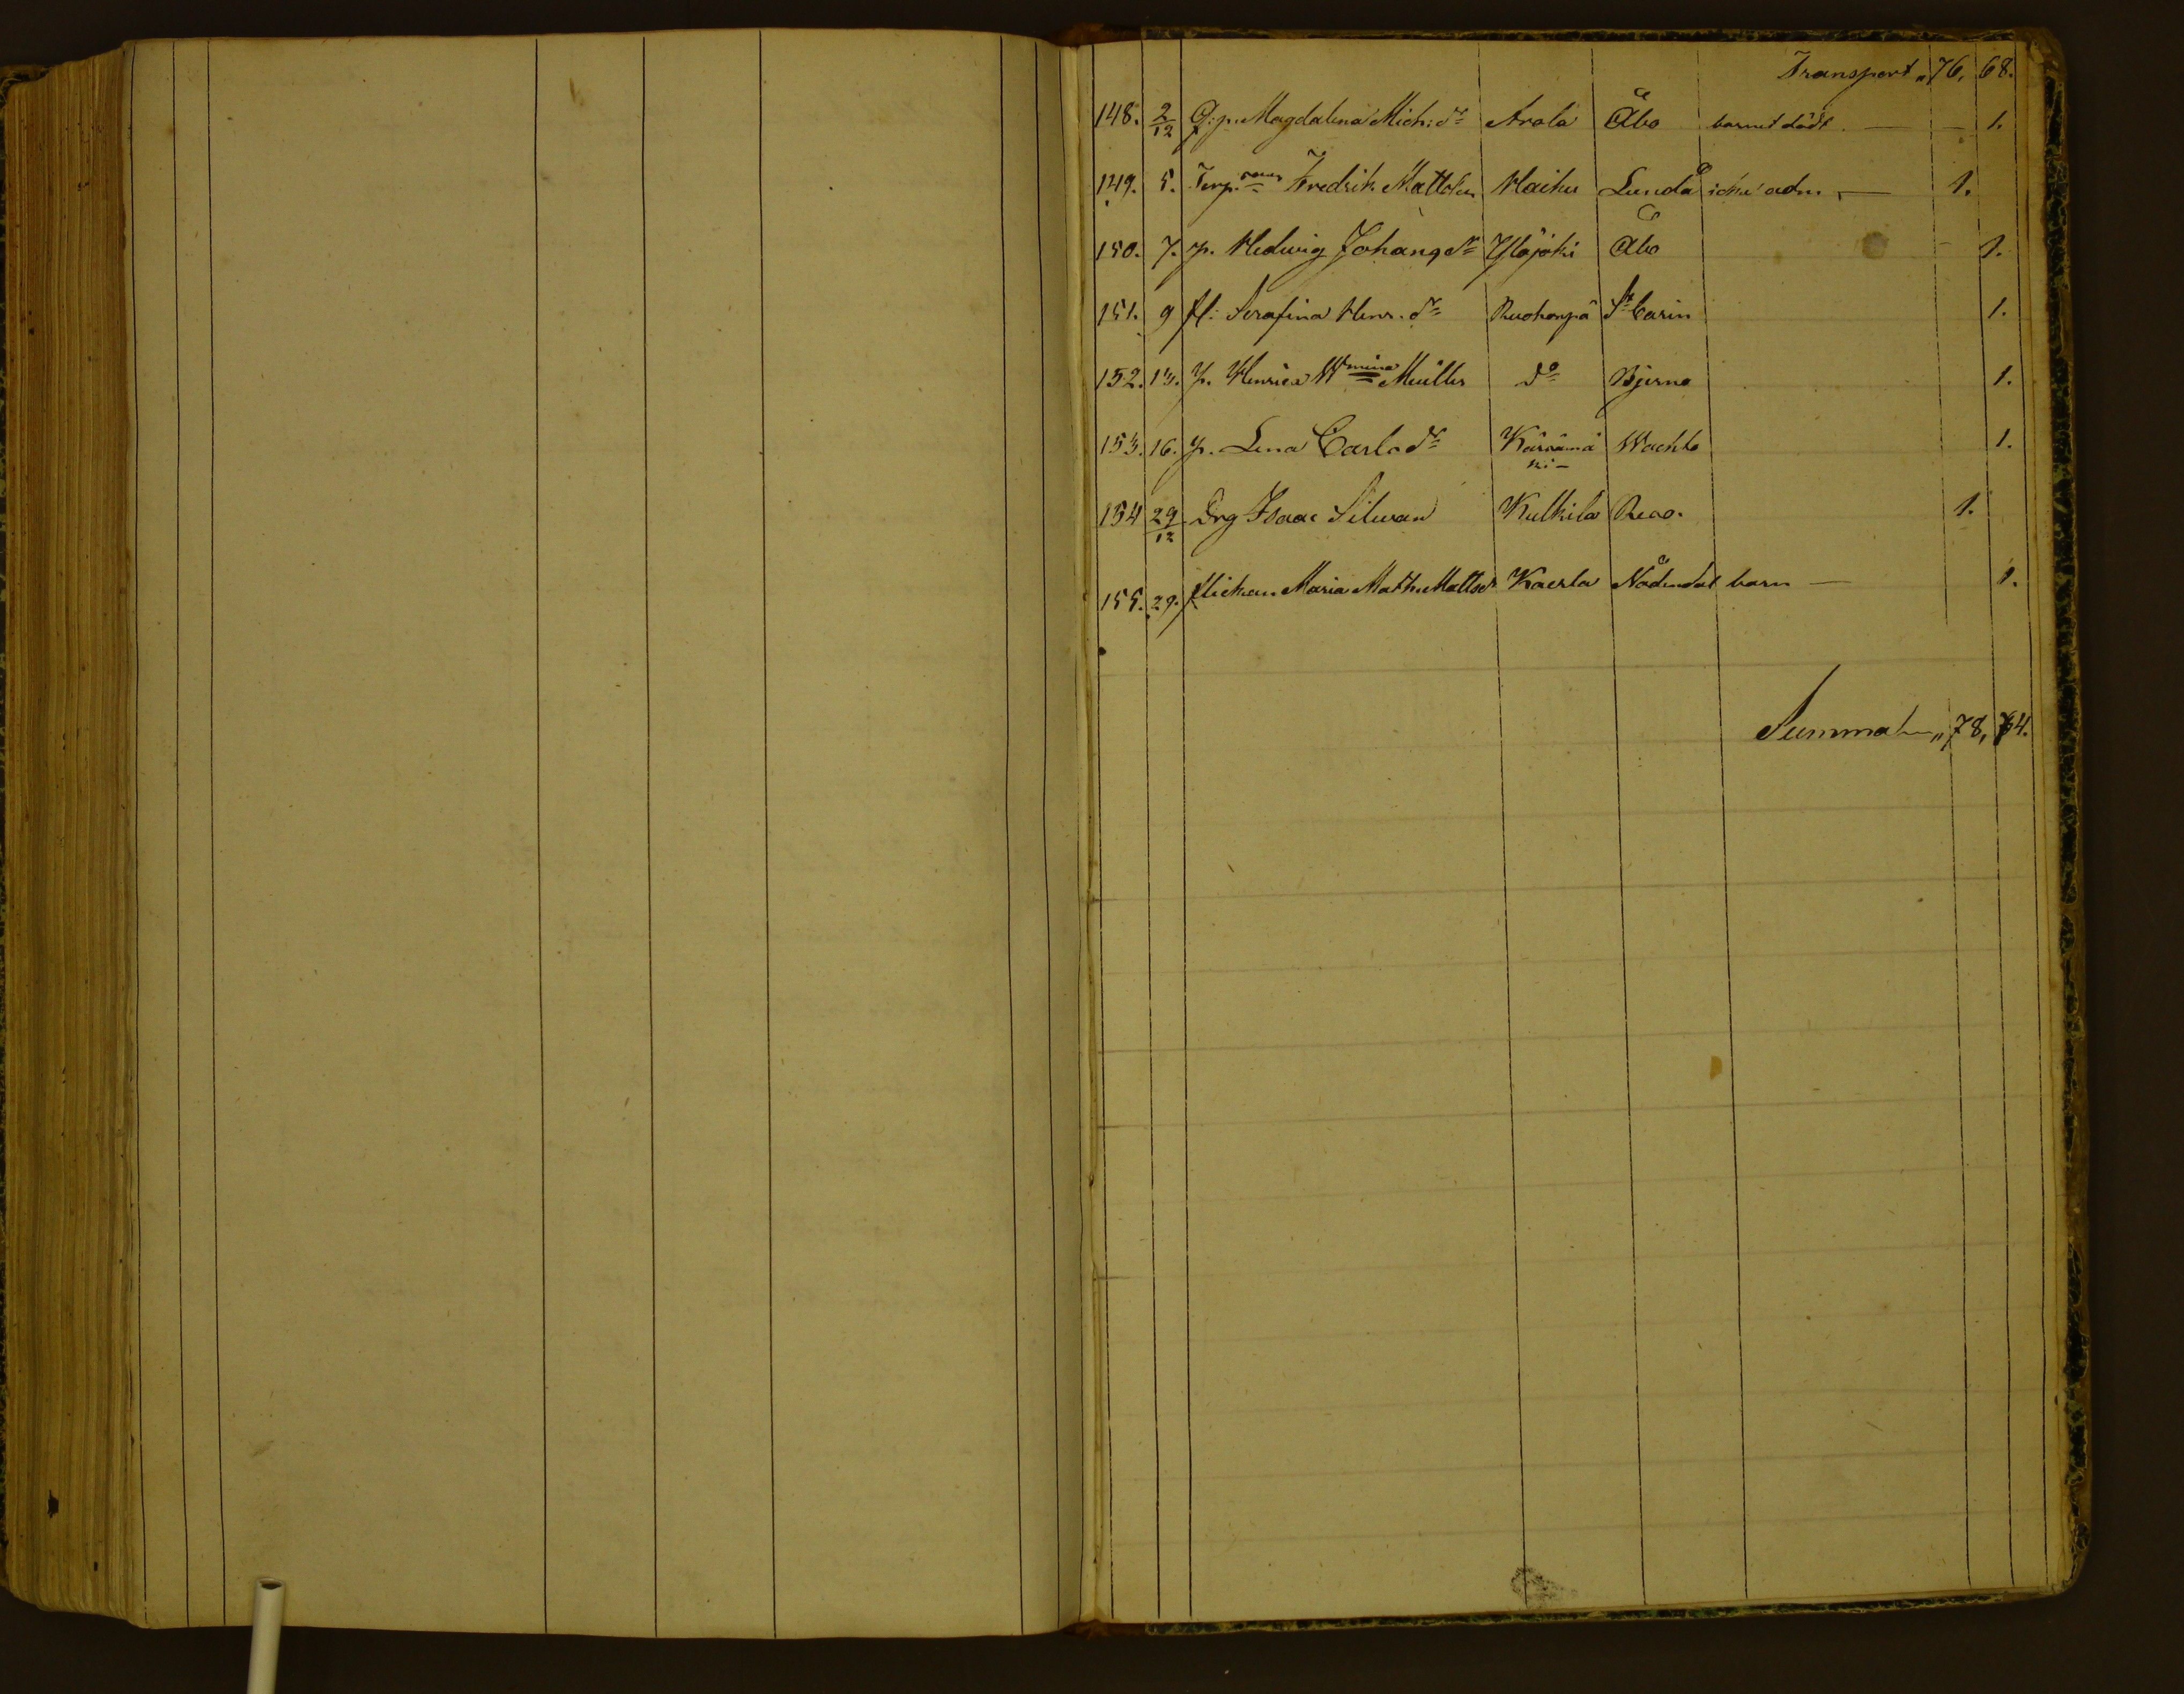 Transport „ 76, 68.
148. 2/12 Q: p. Magdalena Mich: dr Arola Åbo barnet dödt — — 1.
149. 5. Torp. Fredrik Mattsson Haiku Lundå icke adm. — 1.
150. 7. p. Hedwig Johansdr Yläjoki Åbo 1.
151. 9 fl: Serafina Henr. dr Ruohonpä St Carin 1.
152. 13. p. Henrica Wmina Müller do Bjerno 1.
153. 16. p. Lena Carlsdr Kärsämä Wachto 1.
ki-
154 29/12 Drg Isaac Silwan Kulkila Reso. 1.
155. 29. flickan Maria Math: Mattsdr Kaerla Nådendal barn — 1.
Summa „ 78, 74.